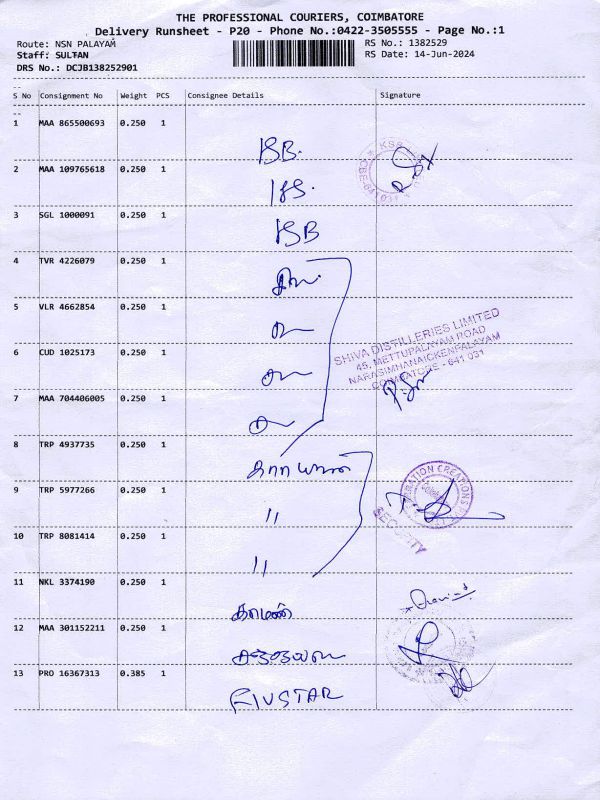 THE PROFESSIONAL COURIERS, COIMBATORE
Delivery Runsheet - P20 - Phone No.:0422-3505555 - Page No.:1
Route: NSN PALAYAM
RS No.: 1382529
Staff: SULTAN
RS Date: 14-Jun-2024
DRS No.: DCJB138252901
S No Consignment No Weight PCS Consignee Details Signature
1 MAA 865500693 0.250 1
KSB.
2 MAA 109765618 0.250 1
3 SGL 1000091 0.250 1
KSB
4 TVR 4226079 0.250 1
5 VLR 4662854 0.250 1
6 CUD 1025173 0.250 1
SHIVA DISTILLERIES LIMITED
45, METTUPALAYAM ROAD
NARASIMHANAICKENPALAYAM
COIMBATORE - 641 031
7 MAA 704406005 0.250 1
8 TRP 4937735 0.250 1
9 TRP 5977266 0.250 1
"
SECURITY
10 TRP 8081414 0.250 1
"
11 NKL 3374190 0.250 1
12 MAA 301152211 0.250 1
13 PRO 16367313 0.385 1
FIVSTAR